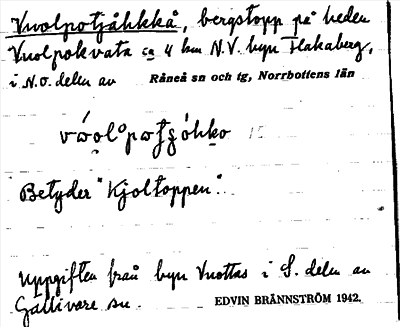 Vuolpotjåhkkå, bergstopp på heden
Vuolpokvata ca 4 km N.V. byn Flakaberg,
i N.O. delen av Råneå sn och tg, Norrbottens län
Betyder "Kjoltoppen".
Uppgiften från byn Vuottas i S. delen av
Gällivare sn. EDVIN BRÄNNSTRÖM 1942.